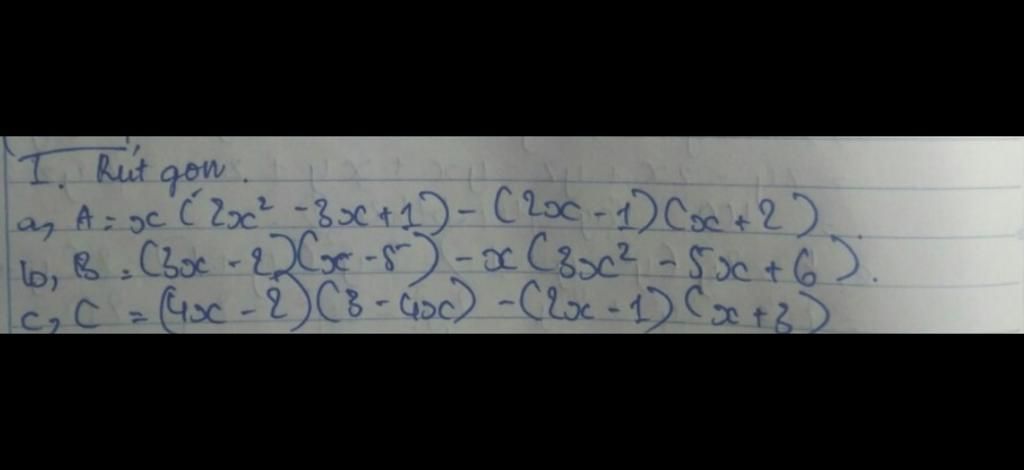 I. Rút gọn.
a, A = x(2x² - 3x + 1) - (2x - 1)(x + 2).
b, B = (3x - 2)(x - 5) - x(3x² - 5x + 6).
c, C = (4x - 2)(3 - 4x) - (2x - 1)(x + 3)